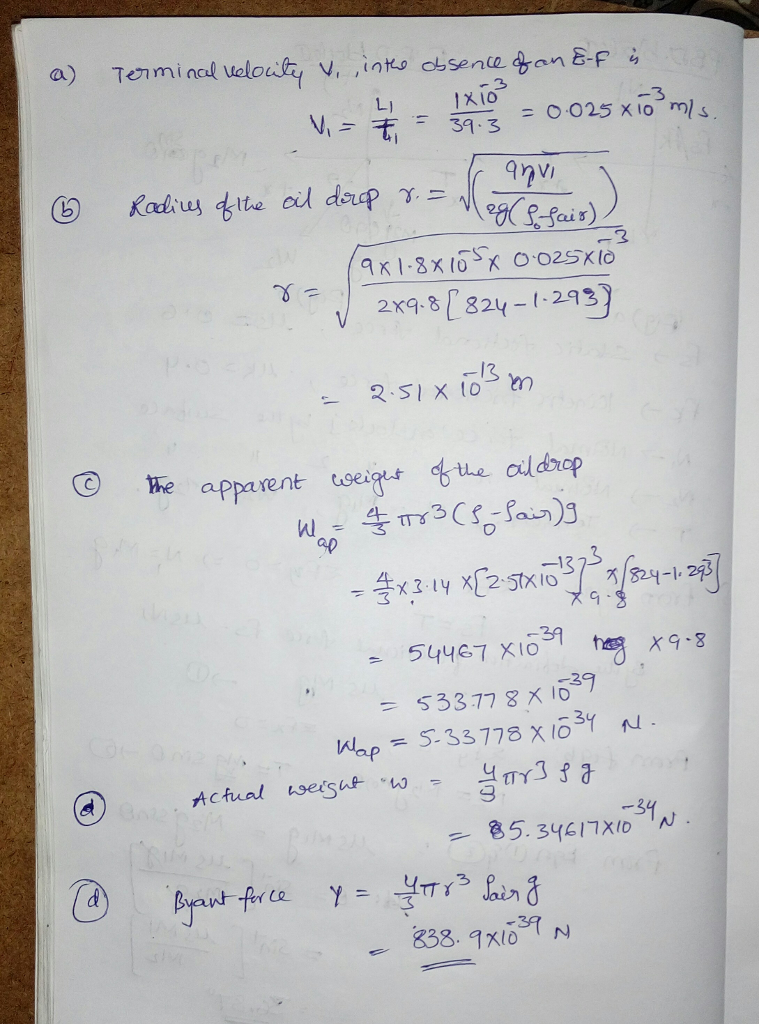 a) Terminal velocity V₁, in the absence of an E-F is
V₁ = L₁/t₁ = 1×10⁻³/39.3 = 0.025 × 10⁻³ m/s.
(b) Radius of the oil drop r = √(9ηv₁/2g(ρ₀-ρair))
r = √(9×1.8×10⁻⁵ × 0.025×10⁻³/2×9.8[824-1.293])
= 2.51 × 10⁻¹³ m
(c) The apparent weight of the oil drop
Wap = 4/3 πr3 (ρ₀-ρair)g
= 4/3 × 3.14 × [2.51×10⁻¹³]³ × [824-1.293] × 9.8
= 54467 × 10⁻³⁹ × 9.8
= 533778 × 10⁻³⁹
Wap = 5.33778 × 10⁻³⁴ N.
(d) Actual weight w = 4/3 πr3 ρg
= 5.34617×10⁻³⁴ N.
(d) Byant force Y = 4/3 πr³ ρair g
= 838.9×10⁻³⁹ N